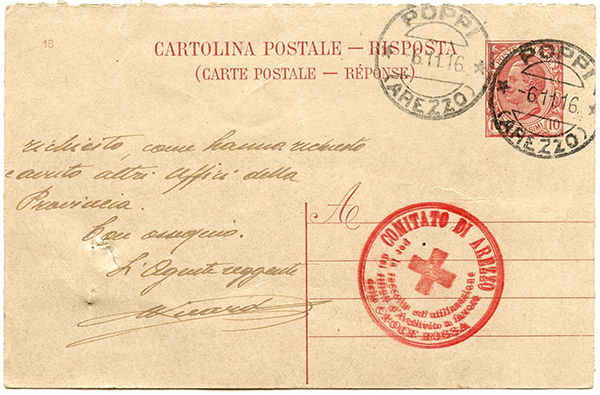 16
CARTOLINA POSTALE — RISPOSTA
(CARTE POSTALE — RÉPONSE)
POPPI
6.11.16.
(AREZZO)
POPPI
-6.11.16
(AREZZO)
10
richiesto, come hanno richiesto
altri Uffici della
Provincia.
Con ossequio.
L'Agente reggente
A
COMITATO DI AREZZO
per la raccolta ed utilizzazione
dei rifiuti d'Archivio a favore
della CROCE ROSSA